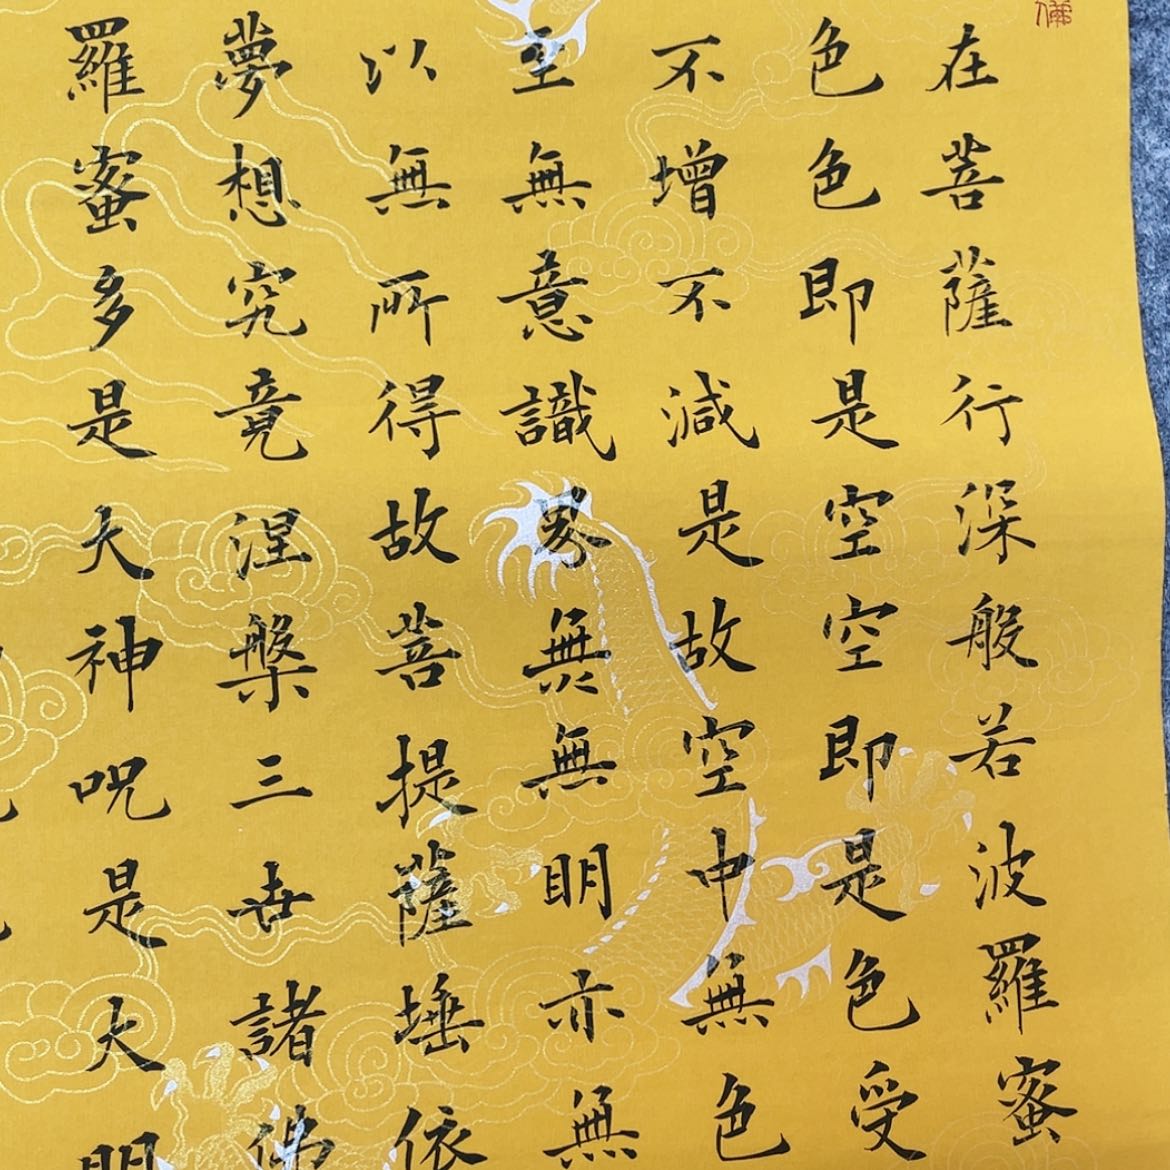 在菩薩行深般若波羅蜜
色色即是空空即是色受
不增不減是故空中無色
至無意識界無無明亦無
以無所得故菩提薩埵依
夢想究竟涅槃三世諸佛
羅蜜多是大神呪是大明